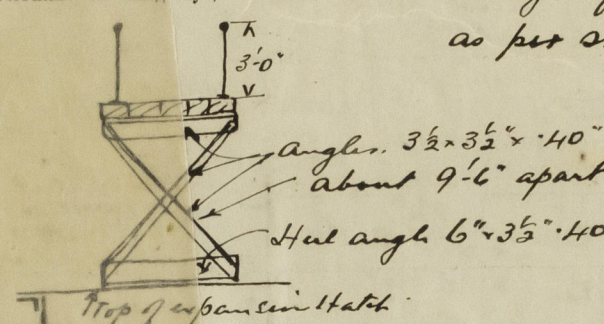 as per s
3'-0"
Angles. 3½" x 3½" x .40"
about 9'-6" apart
Heel angle 6" x 3½" .40
Top of expansion Hatch.